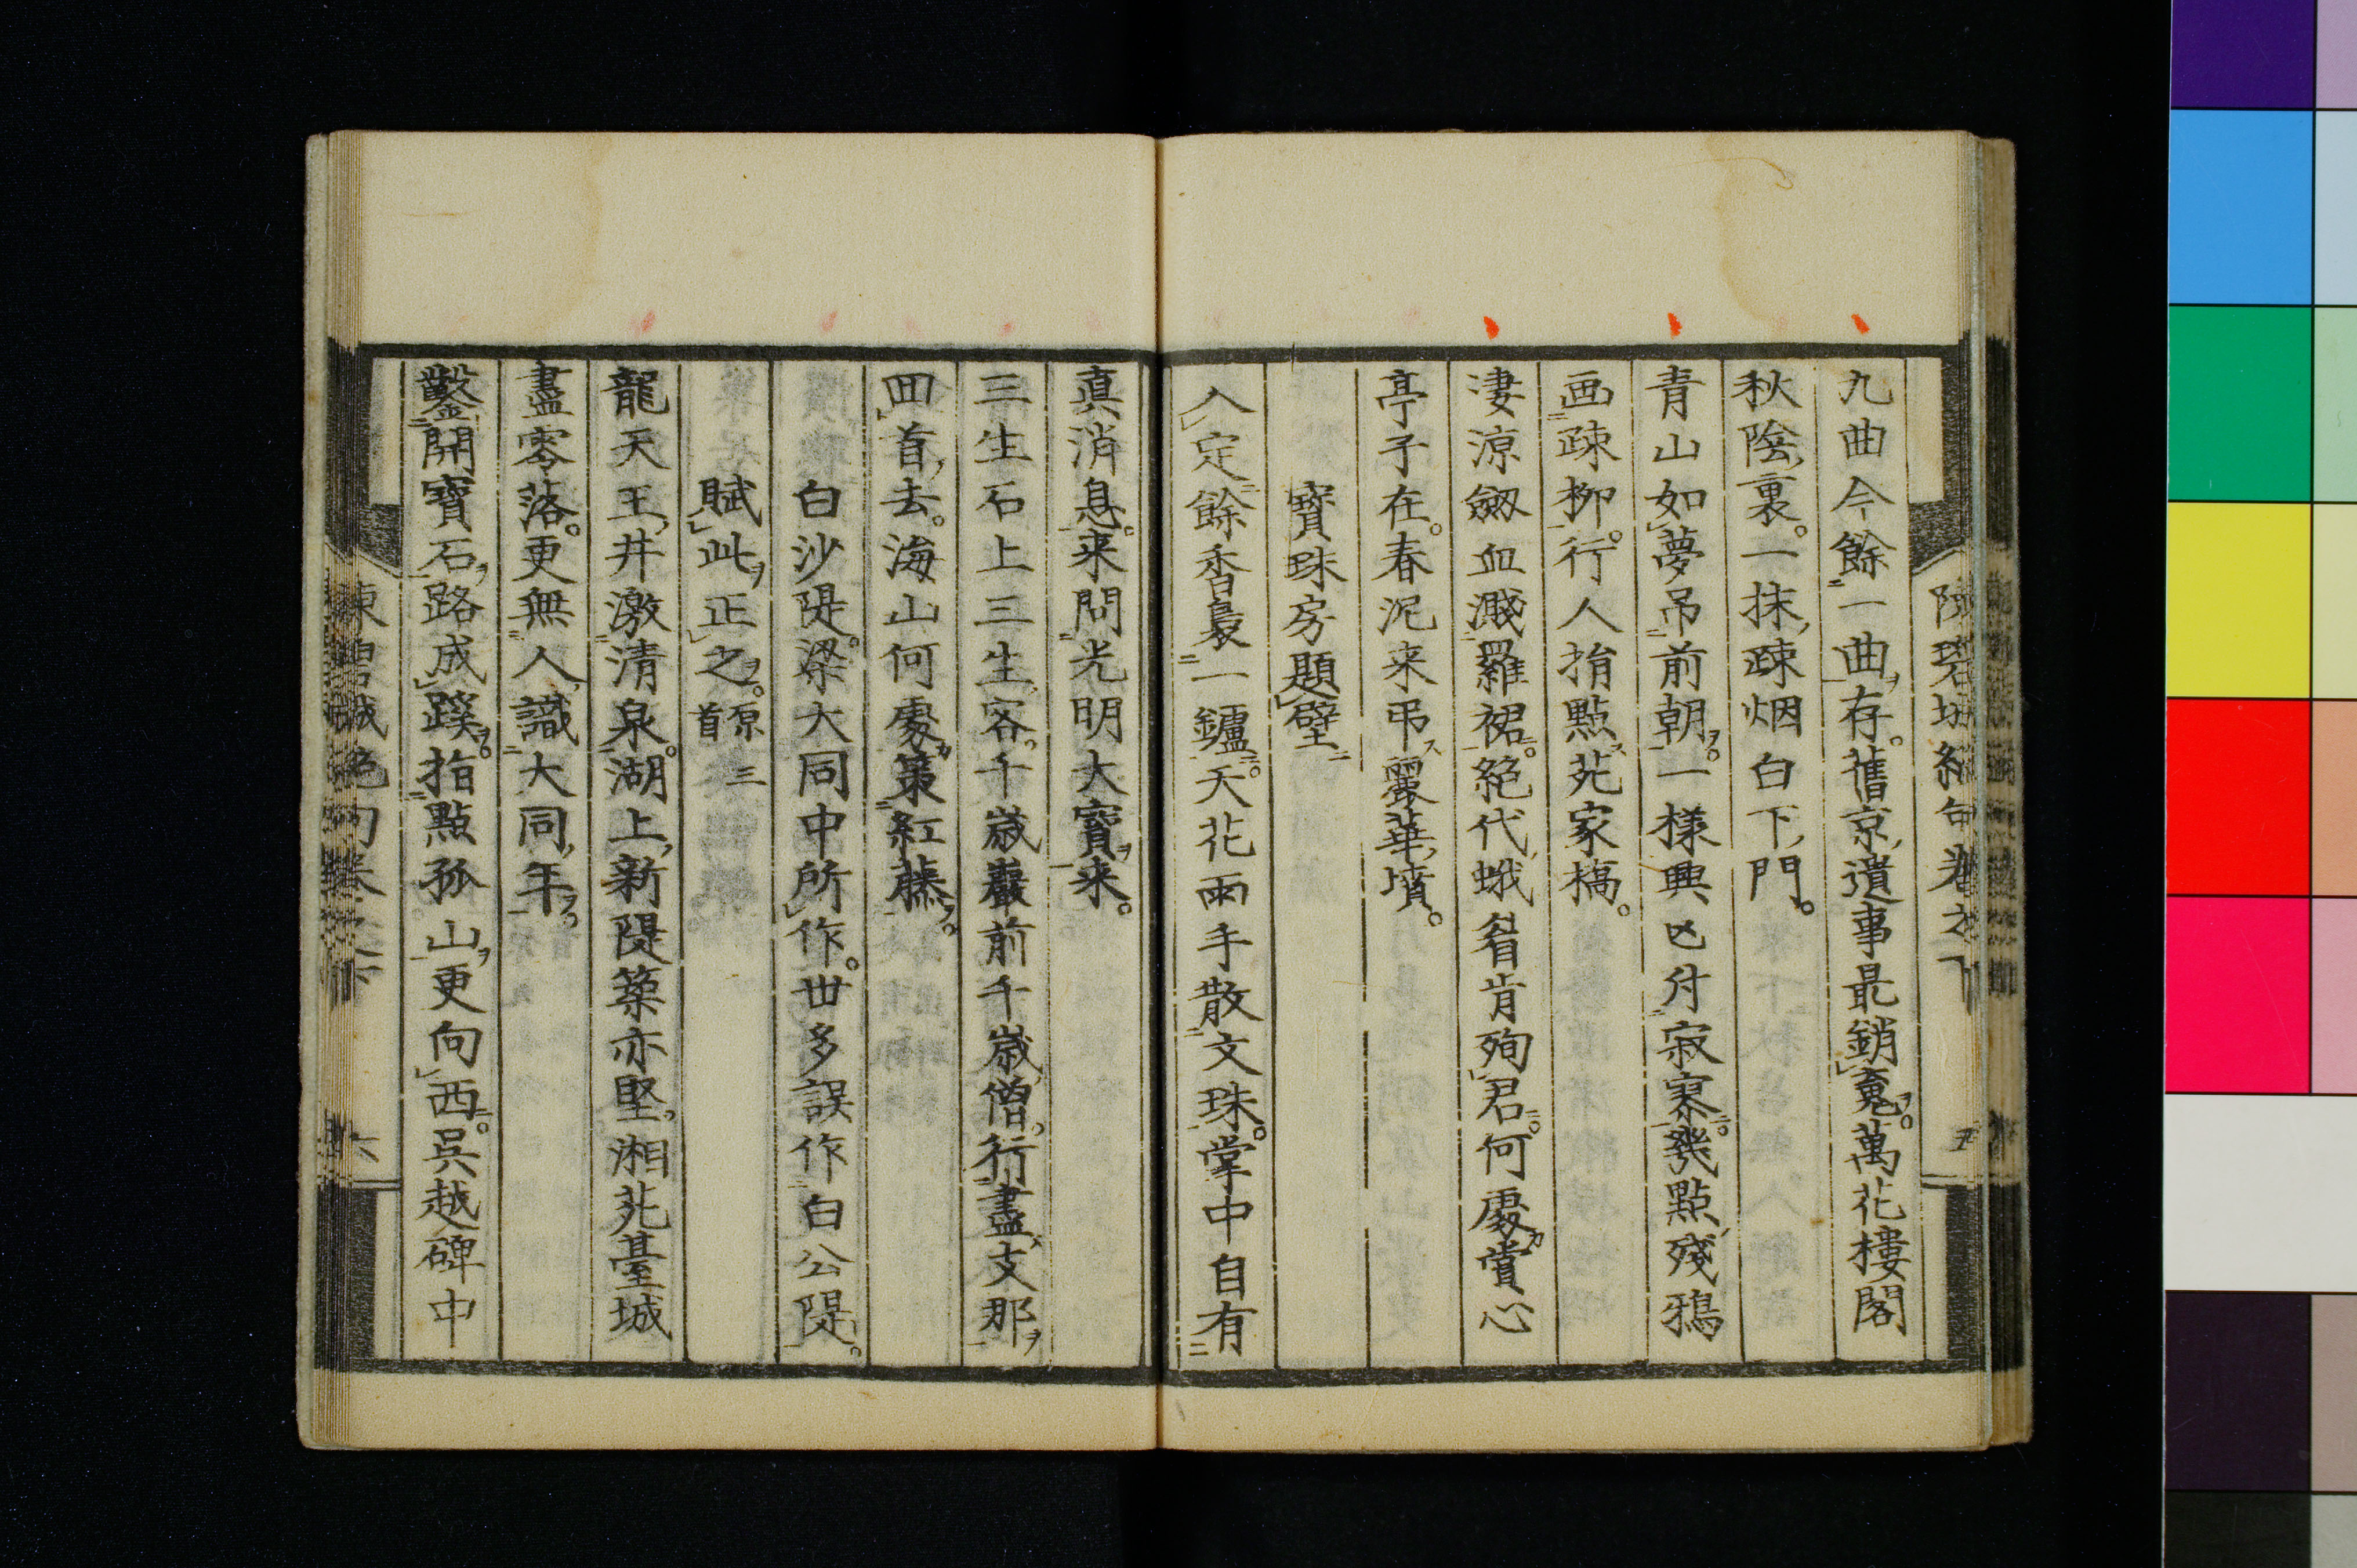 九曲今餘一曲存。舊京遺事最銷寃。萬花樓閣
秋陰裏。一抹疎烟白下門。
青山如夢吊前朝。一樣興亡付寂寥。幾點殘鴉
画疎柳。行人指點苑家橋。
淒涼劔血濺羅裙。絕代蛾眉肯殉君。何處賞心
亭子在。春泥来弔麗華墳。
寶珠房題壁
入定餘香裊一鑪。天花兩手散文珠。掌中自有
真消息。来問光明大寶来。
三生石上三生客。千歳巖前千歳僧。行盡支那
回首去。海山何處策紅藤。
白沙隄。梁大同中所作。世多誤作白公隄。
賦此正之。原三首
龍天王井激清泉。湖上新隄築亦堅。湘苑臺城
盡零落。更無人識大同年。
鑿開寶石路成蹊。指點孤山更向西。吳越碑中
陳碧城絕句卷之下
六